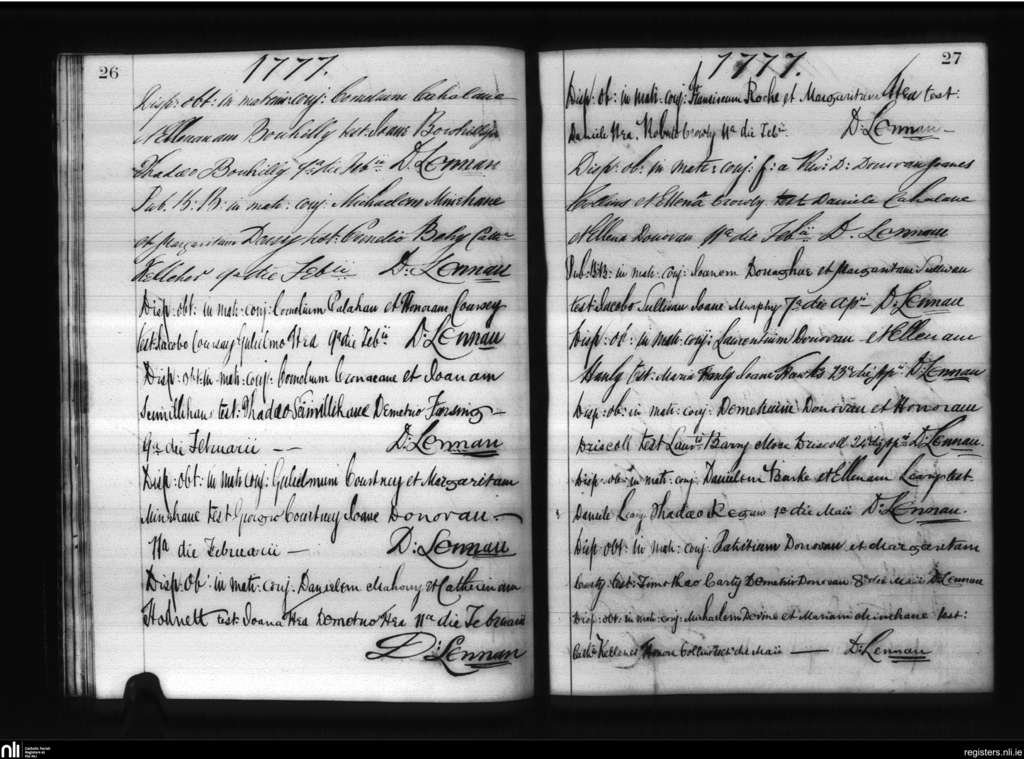 26
1777.
Disp: obt: in matrim: conj: Cornelium Cahalane
et Ellenam Bouhilly test: Joane Bouhilly
Thadao Bouhilly 9a die Feb:ii D: Lennan
Pub. B: B: in mat: conj: Michaelem Minihane
et Margaritam Dacey test: Cornelio Bohig Cath:
Kelleher 9a die Feb:ii D: Lennan
Disp: obt: in mat: conj: Cornelium Calahan et Honoram Coursey
test: Jacobo Coursey Gulielmo Hea 9a die Feb:ii D: Lennan
Disp: obt: in mat: conj: Cornelium Cronaeane et Joanam
test: Thadao Demetrio
9a die Februarii — D: Lennan
Disp: obt: in mat: conj: Gulielmum Courtney et Margaritam
Minihane test: Georgio Courtney Joane Donovan —
11a die Februarii — D: Lennan
Disp: Ob: in mat: conj: Danielem Mahony et Catherinam
Hobnett test: Joana Hea Demetrio Hea 11a die Februarii
D: Lennan
27
1777.
Disp: ob: in mat: conj: Franciscum Roche et Margaritam Hea test:
Daniele Hea. Robert Crowly 11a die Feb:ii D: Lennan —
Disp: ob: in mat: conj: f: a Rev: D: Donovan Joanes
Collins et Ellena Crowly test Daniele Cahalane
et Ellena Donovan 11a die Feb:ii D. Lennan
Pub: B:B: in mat: conj: Joanem Donaghue et Margaritam Sullivan
test: Jacobo Sullivan Joane Murphy 7a die Ap:ii D: Lennan
Disp: ob: in mat: conj: Laurentium Donovan et Ellenam
Hanly test: Maria Hanly Joane Hawks 23a die Ap:ii D: Lennan
Disp: ob: in mat: conj: Demetrium Donovan et Honoram
Driscoll test Laur: Barry More Driscoll 24 die Ap:ii D: Lennan.
Disp: ob: in mat: conj: Danielem Burke et Ellenam Leary test
Daniele Leary Thadao Regan 1a die Maii D: Lennan.
Disp: obt: in mat: conj: Patritium Donovan et Margaritam
Carty test: Timotheo Carty Demetrio Donovan 8a die Maii D: Lennan
Disp: obt: in mat: conj: Michaelem Devine et Mariam Minihane test:
Cath: Honora Collins die Maii — D: Lennan
nli Catholic Parish Registers at the NLI
registers.nli.ie